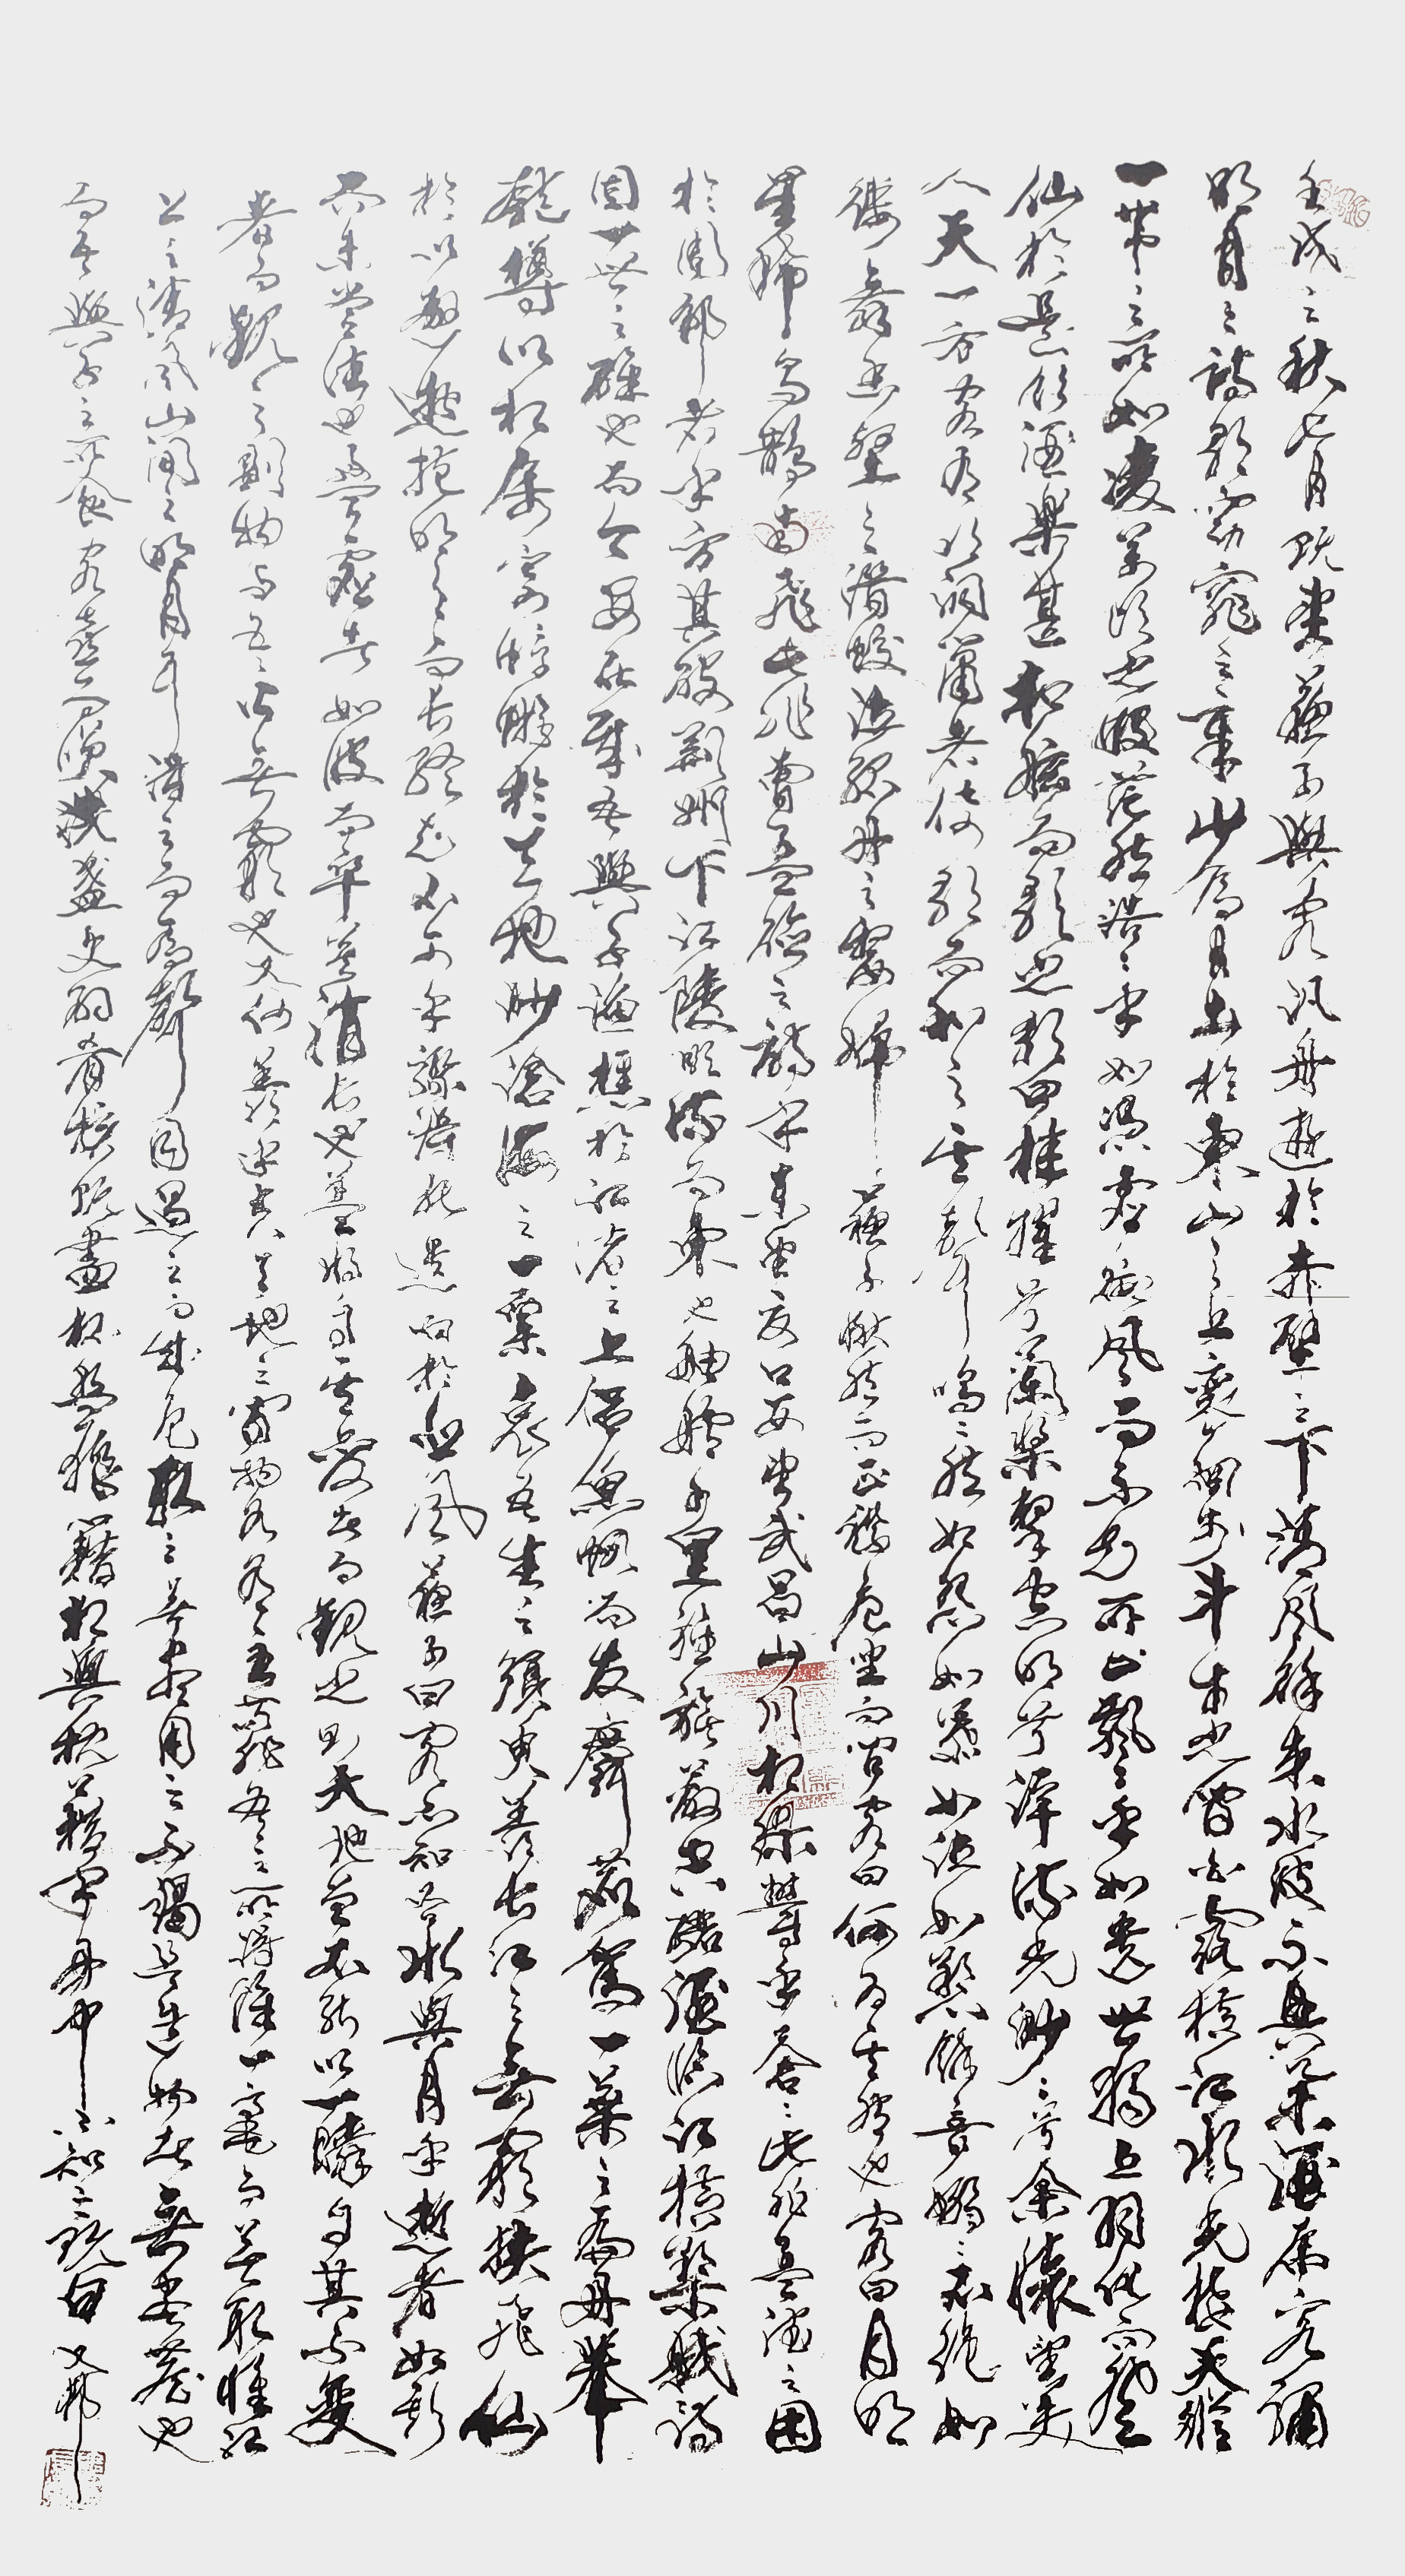 壬戌之秋七月既望蘇子與客汎舟遊於赤壁之下清風徐来水波不興舉酒屬客誦
明月之詩歌窈窕之章少焉月出於東山之上裵徊於斗牛之間白露横江水光接天縱
一葦之所如凌萬頃之茫然浩浩乎如馮虚御風而不知所止飄飄乎如遺世獨立羽化而登
仙於是飲酒樂甚扣舷而歌之歌曰桂櫂兮蘭槳擊空明兮泝流光渺渺兮余懷望美
人天一方客有吹洞簫者倚歌而和之其聲嗚嗚然如怨如慕如泣如訴餘音嫋嫋不絕如
縷舞幽壑之潛蛟泣孤舟之嫠婦蘇子愀然而正襟危坐而問客曰何為其然也客曰月明
星稀烏鵲南飛此非曹孟德之詩乎東望夏口西望武昌山川相繆鬱乎蒼蒼此非孟德之困
於周郎者乎方其破荊州下江陵順流而東也舳艫千里旌旗蔽空釃酒臨江横槊賦詩
固一世之雄也而今安在哉吾與子漁樵於江渚之上侣魚蝦而友麋鹿駕一葉之扁舟舉
匏樽以相屬寄蜉蝣於天地渺滄海之一粟哀吾生之須臾羡長江之無窮挟飛仙
於以遨遊抱明月而長終知不可乎驟得託遺響於悲風蘇子曰客亦知夫水與月乎逝者如斯
而未嘗往也盈虚者如彼而卒莫消長也蓋將自其變者而觀之則天地曾不能以一瞬自其不變
者而觀之則物與吾皆無窮也又何羡乎夫天地之間物各有主苟非吾之所將雖一毫而莫取惟江
上之清風山間之明月耳得之而為聲目遇之而成色取之無盡用之不竭是造物者無尽藏也
而吾與子之所食客喜而笑洗盏更酌肴核既盡杯盤狼籍相與枕藉乎舟中不知之既白